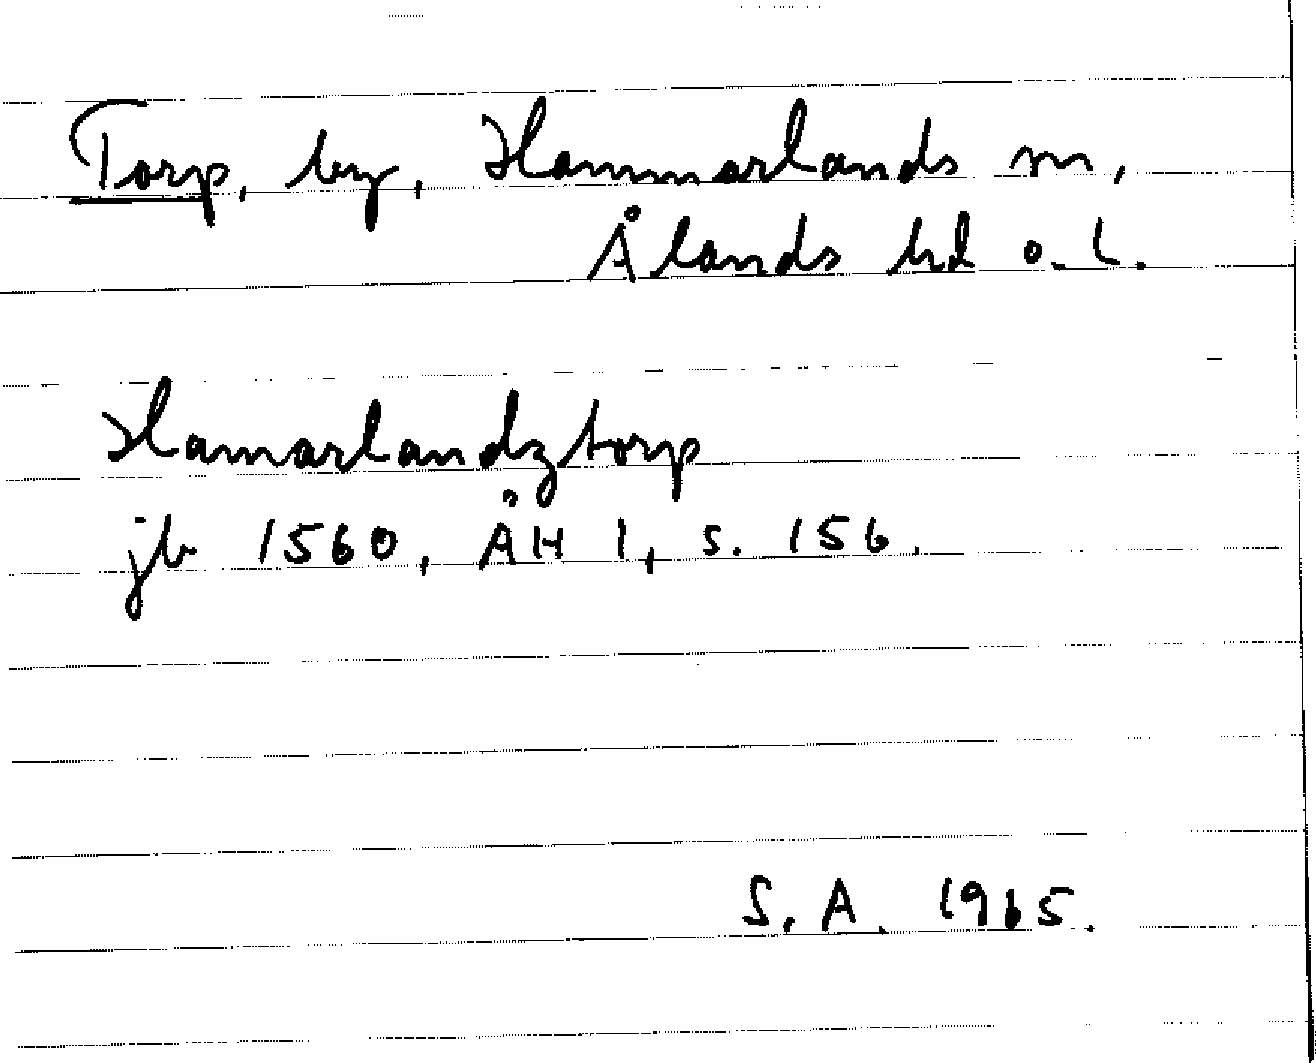 Torp, by, Hammarlands sn,
Ålands hd o. l.
Hamarlandztorp
jb 1560, ÄH 1, s. 156.
S. A. 1965.